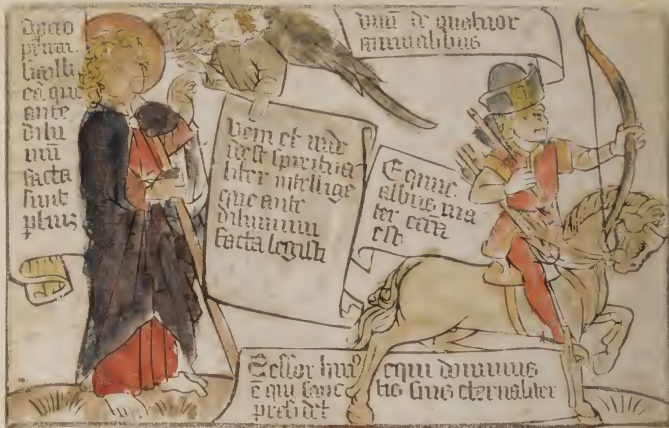 ante
dilu
facta
sunt
plius
vnū de quatuor
animalibus
Veni et vide
spiritua
liter intellige
que ante
diluuium
facta legisti
Equus
albus ma
ter ecca
est
Sessor hui9 equi dominus
ē qui sanc tis suis eternaliter
presidet